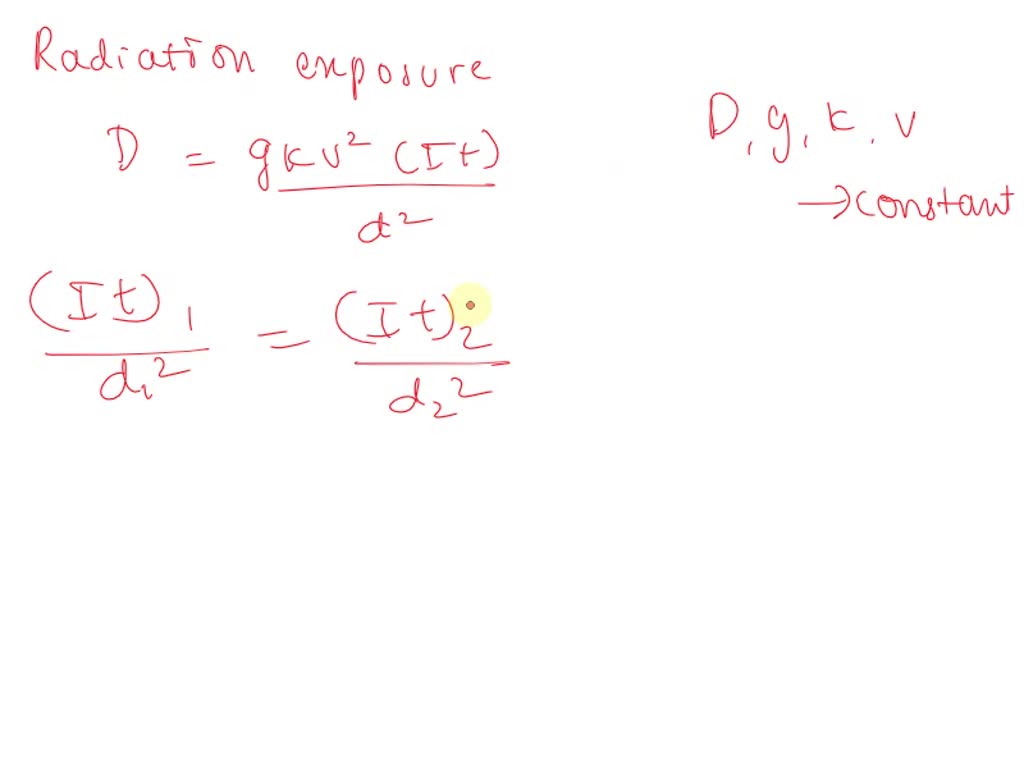 Radiation exposure
D = gkv² (It)
d²
D, g, k, v
→ constant
(It)₁ = (It)₂
d₁² d₂²